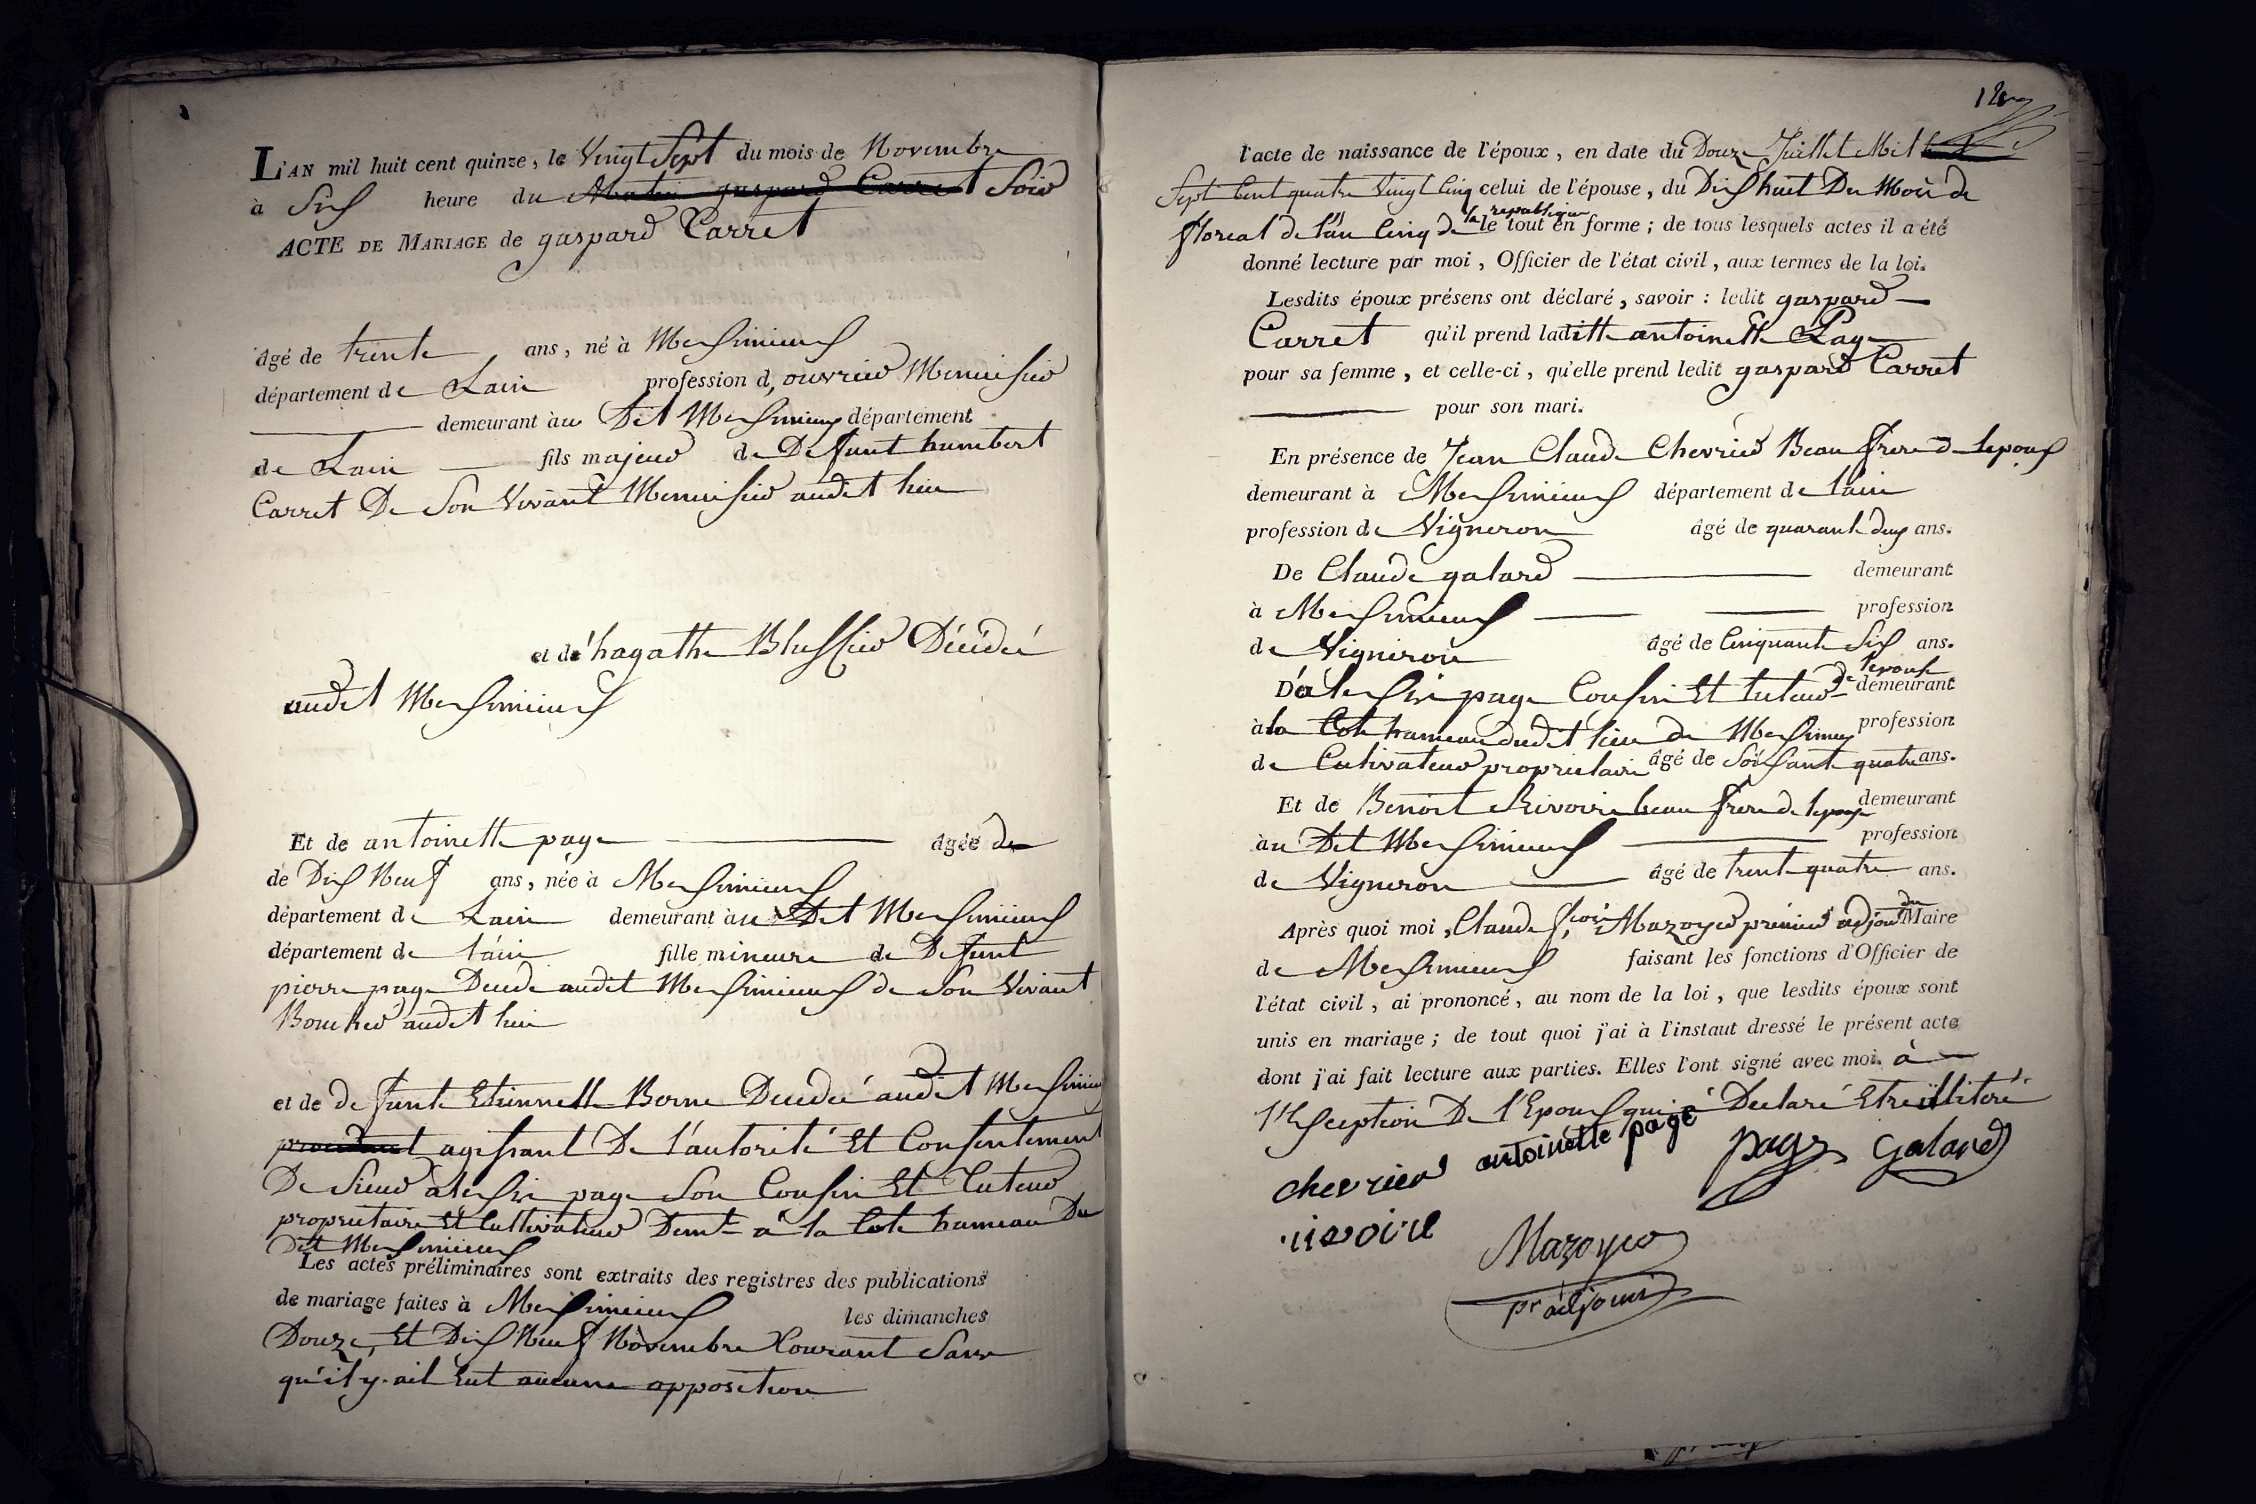 L'AN mil huit cent quinze, le Vingt Sept du mois de Novembre
à Six heure du Matin gaspard Carret Soir
ACTE DE MARIAGE de gaspard Carret
âgé de trente ans, né à Messimieux
département de Lain profession d, ouvrier Menuisier
demeurant àu Dit Messimieux département
de Lain fils majeur de Defunt humbert
Carret De Son Vivant Menuisier audit lieu
et de hagathe Décédée
audit Messimieux
Et de antoinette page âgée de
de Dix Neuf ans, née à Messimieux
département de Lain demeurant àu Dit Messimieux
département de l'ain fille mineure de Defunt
pierre page Decede audit Messimieux de Son Vivant
Boucher audit lieu
et de defunte Etiennette Borne Decedée audit Messimieux
procedant agissant De l'autorité Et Consentement
De Sieur alexis page Son Cousin Et Tuteur
propriétaire Et Cultivateur Demt a la Cote hameau Du
Dit Messimieux
Les actes préliminaires sont extraits des registres des publications
de mariage faites à Messimieux les dimanches
Douze, Et Dix Neuf Novembre Courant Sans
qu'il y ait Eut aucune opposition
l'acte de naissance de l'époux, en date du Douze Juillet Mil
Sept Cent quatre Vingt Cinq celui de l'épouse, du Dix huit Du Mois de
la republique
floreal de l'an Cinq de le tout en forme; de tous lesquels actes il a été
donné lecture par moi, Officier de l'état civil, aux termes de la loi.
Lesdits époux présens ont déclaré, savoir: ledit gaspard
Carret qu'il prend laditte antoinette Page
pour sa femme, et celle-ci, qu'elle prend ledit gaspard Carret
pour son mari.
En présence de Jean Claude Chevrier Beau frere de lepoux
demeurant à Messimieux département de l'ain
profession de Vigneron âgé de quarante deux ans.
De Claude galard demeurant
à Messimieux profession
de Vigneron âgé de Cinquante Six ans.
de l'epouse
D'alexsis page Cousin Et tuteur demeurant
à la Cote hameau dudit lieu de Messimieux profession
de Cultivateur proprietaire âgé de Soissante quatre ans.
Et de Benoit Rivoire beau frere de lepoux demeurant
àu Dit Messimieux profession
de Vigneron âgé de trente quatre ans.
Après quoi moi, Claude fçois Mazoyer premier adjoint du Maire
de Messimieux faisant les fonctions d'Officier de
l'état civil, ai prononcé, au nom de la loi, que lesdits époux sont
unis en mariage; de tout quoi j'ai à l'instaut dressé le présent acte
dont j'ai fait lecture aux parties. Elles l'ont signé avec moi. à
l'Exseption De l'Epoux qui a Declaré Etre illitéré
chevrier antoinette page page Galard
rivoire
Mazoyer
pr adjoint